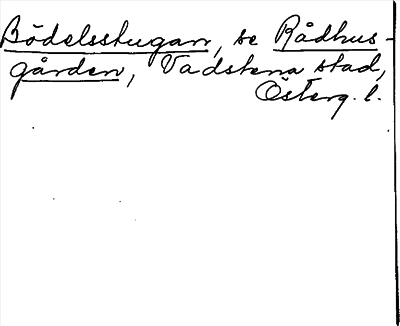 Bödelsstugan, se Rådhus-
gården, Vadstena stad,
Österg. l.